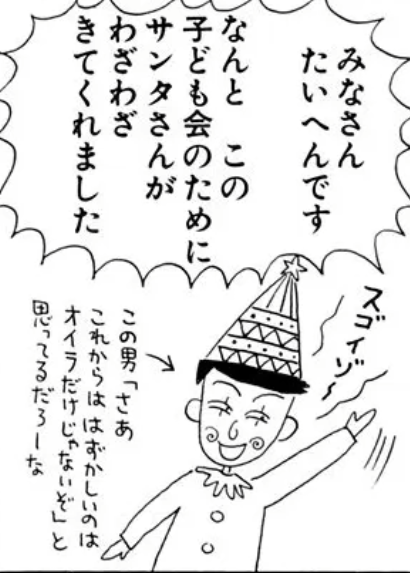 みなさん
たいへんです
なんと この
子ども会のために
サンタさんが
わざわざ
きてくれました
スゴイゾ〜
この男「さあ
これからは はずかしいのは
オイラだけじゃないぞ」と
思ってるだろーな